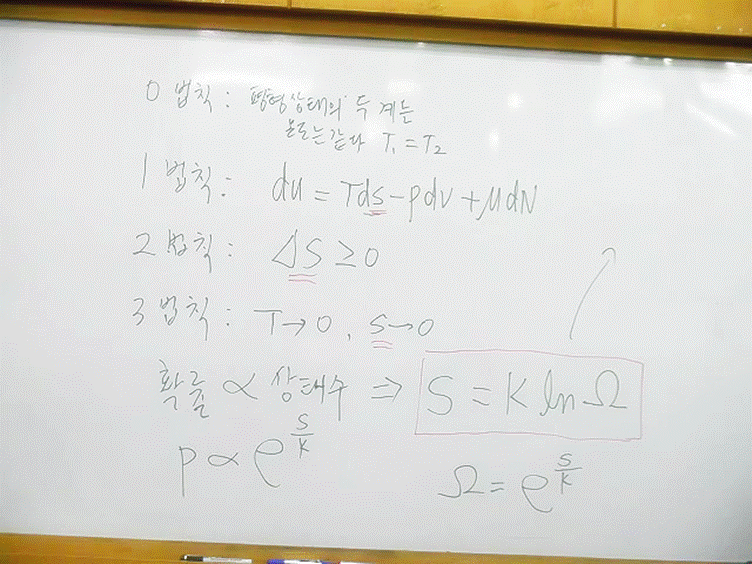 0 법칙 : 평형상태의 두 계는
온도는 같다 T₁ = T₂
1 법칙 : du = Tds - pdv + μdN
2 법칙 : ΔS ≥ 0
3 법칙 : T→0 , s→0
확률 ∝ 상태수 ⇒ S = k ln Ω
p ∝ e^{S/k}
Ω = e^{S/k}